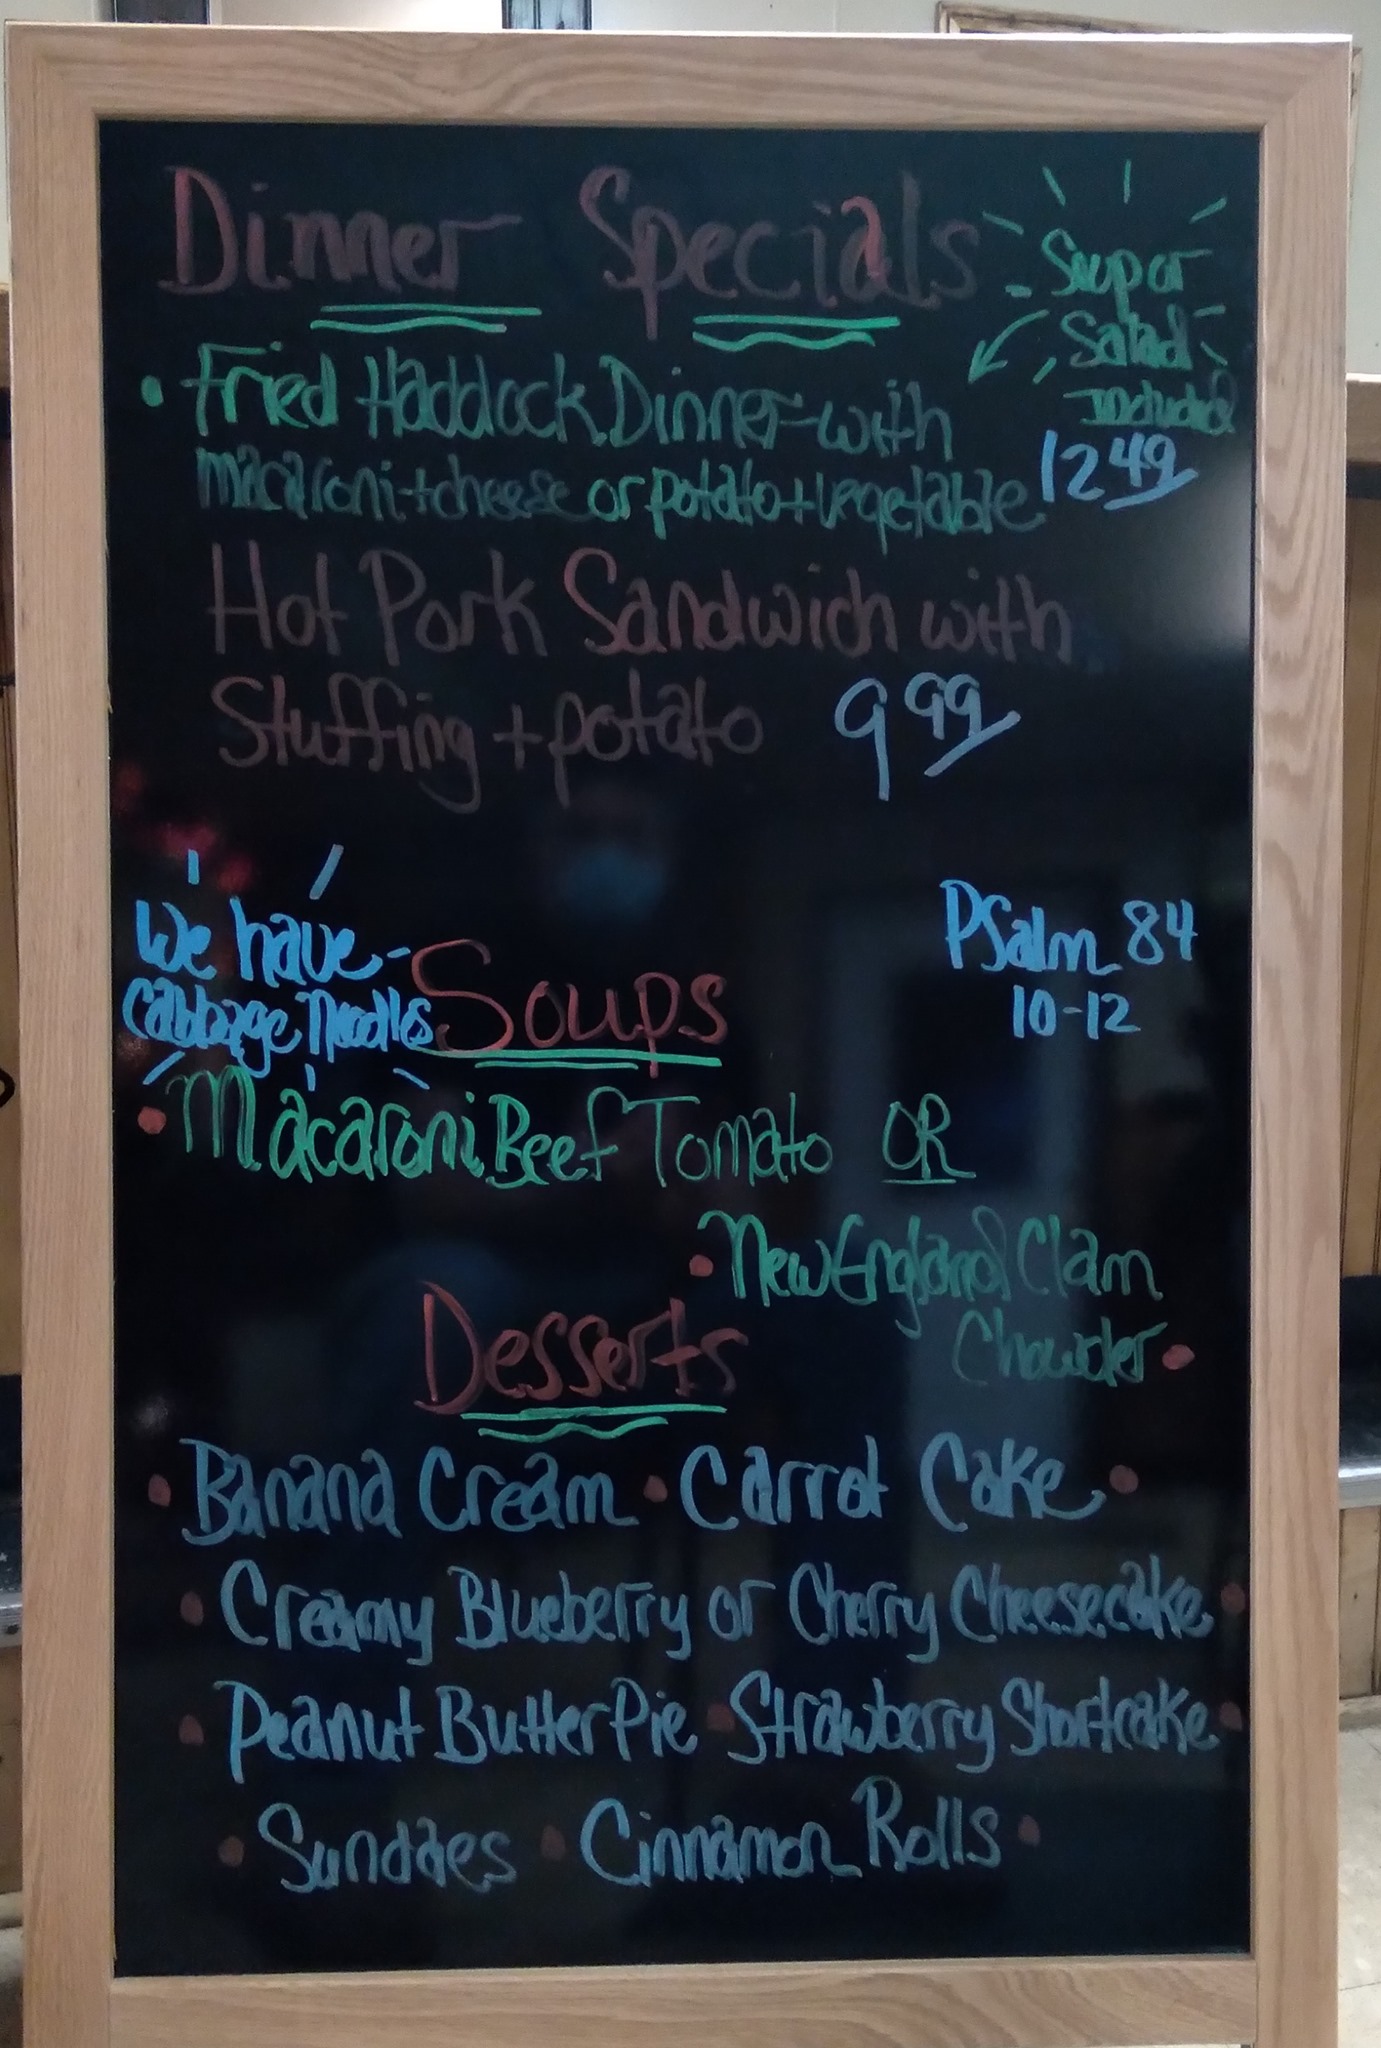 Dinner Specials
Soup or
Salad
included
• Fried Haddock Dinner - with
macaroni + cheese or potato + vegetable 12 49
Hot Pork Sandwich with
Stuffing + potato 9 99
We have -
Cabbage Noodles
Psalm 84
10-12
Soups
• Macaroni Beef Tomato OR
• New England Clam
Chowder •
Desserts
• Banana Cream • Carrot Cake •
• Creamy Blueberry or Cherry Cheesecake •
• Peanut Butter Pie • Strawberry Shortcake •
• Sundaes • Cinnamon Rolls •